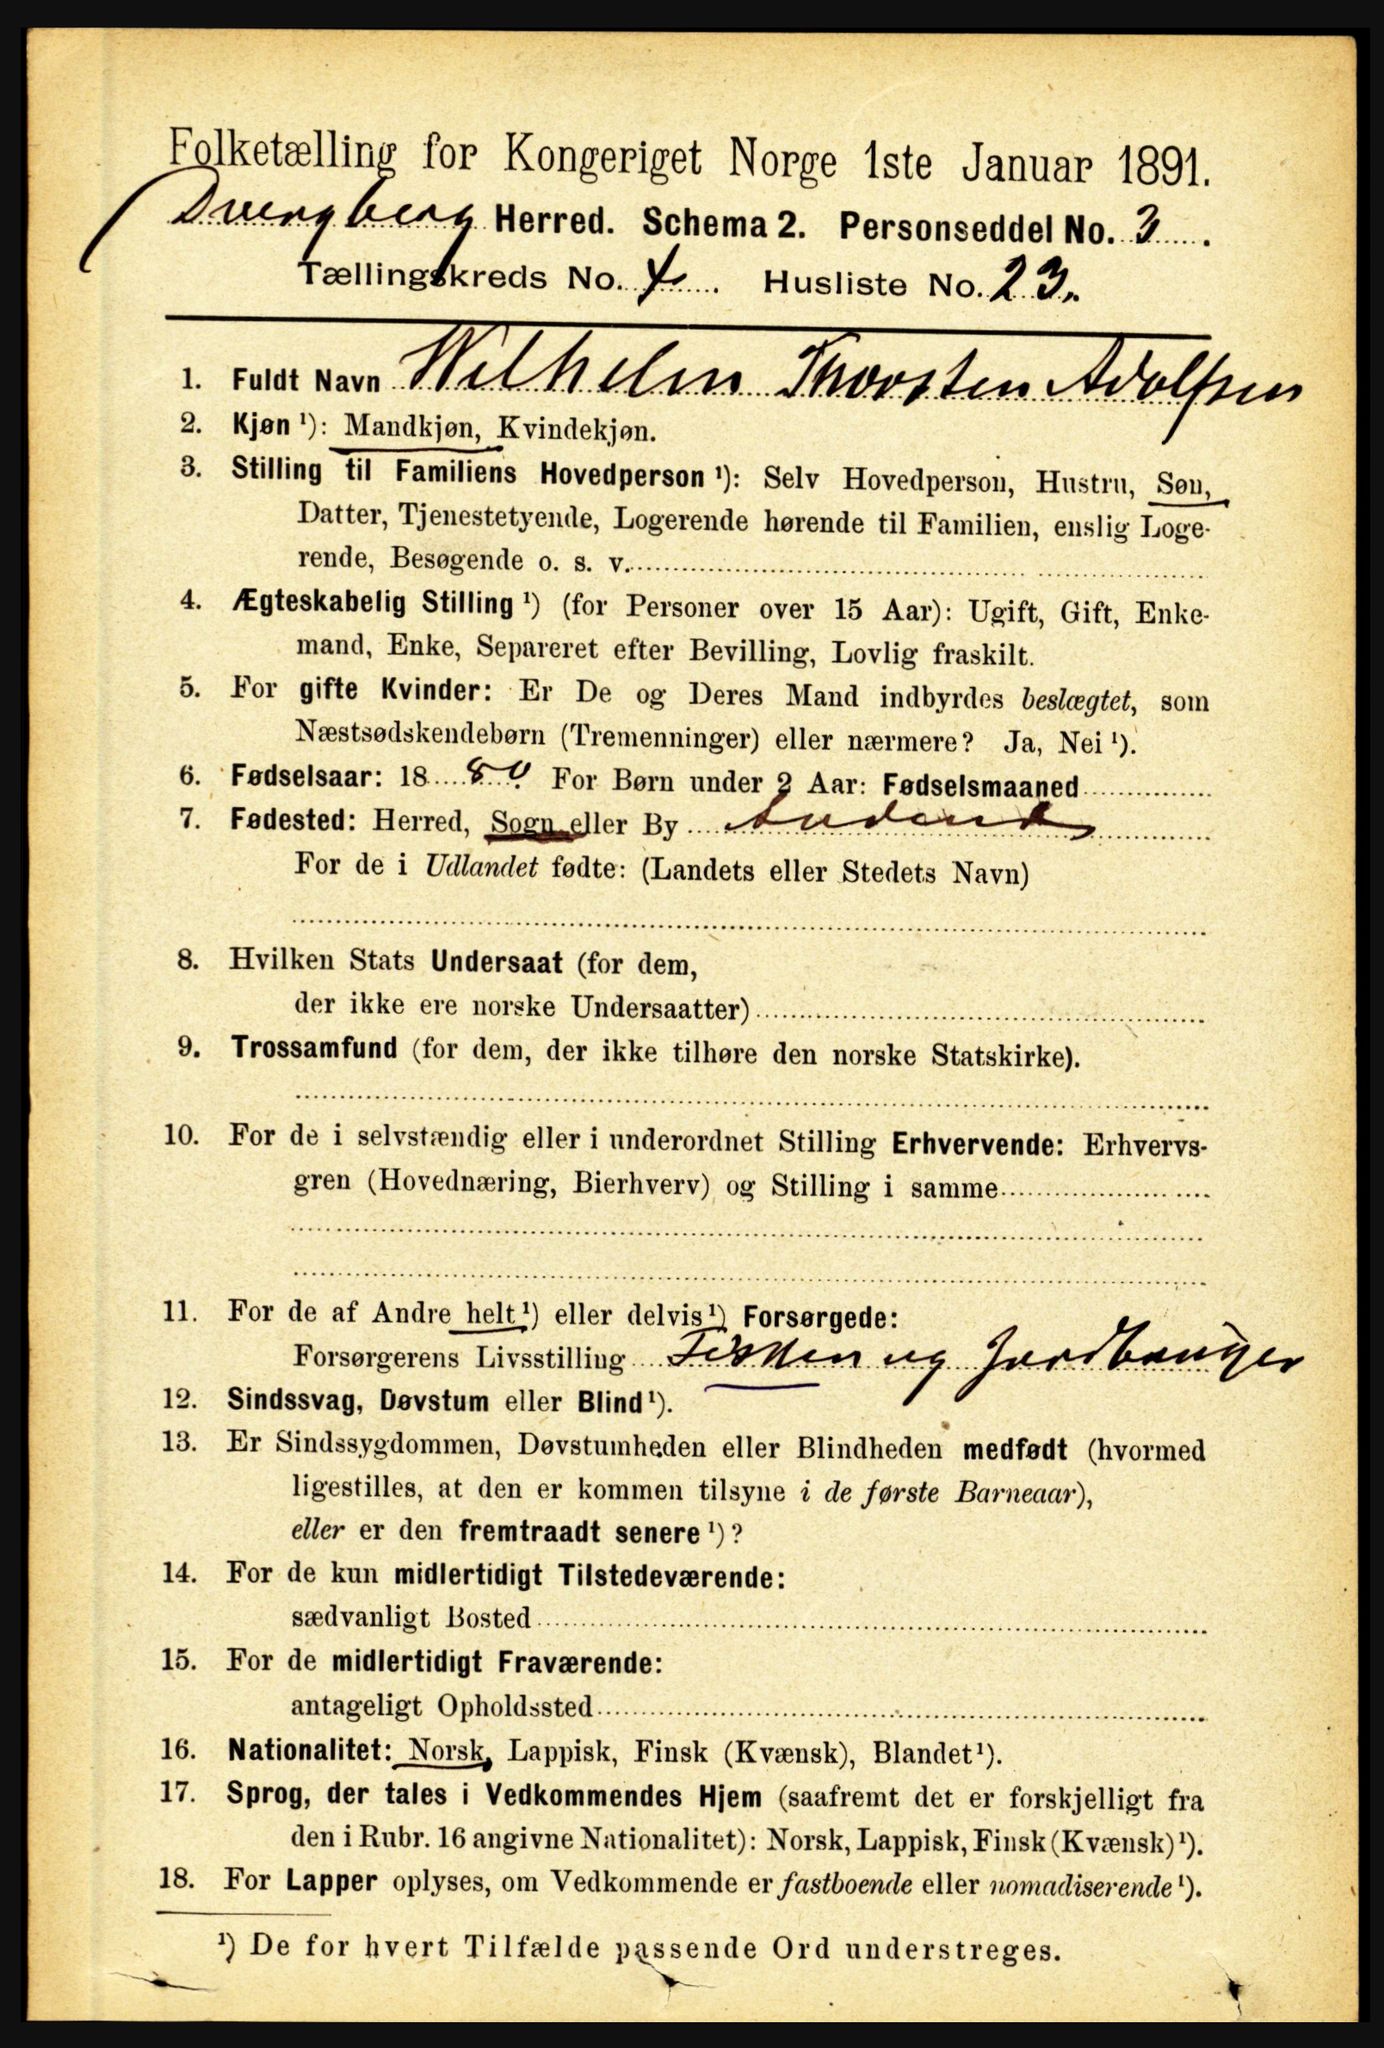 Folketælling for Kongeriget Norge 1ste Januar 1891.
Dverberg Herred. Schema 2. Personseddel No. 3.
Tællingskreds No. 4. Husliste No. 23.
1. Fuldt Navn Wilhelm Thorsten Adolfsen
2. Kjøn¹): Mandkjøn, Kvindekjøn.
3. Stilling til Familiens Hovedperson¹): Selv Hovedperson, Hustru, Søn,
Datter, Tjenestetyende, Logerende hørende til Familien, enslig Loge-
rende, Besøgende o. s. v.
4. Ægteskabelig Stilling¹) (for Personer over 15 Aar): Ugift, Gift, Enke-
mand, Enke, Separeret efter Bevilling, Lovlig fraskilt.
5. For gifte Kvinder: Er De og Deres Mand indbyrdes beslægtet, som
Næstsødskendebørn (Tremenninger) eller nærmere? Ja, Nei¹).
6. Fødselsaar: 1880 For Børn under 2 Aar: Fødselsmaaned
7. Fødested: Herred, Sogn eller By
For de i Udlandet fødte: (Landets eller Stedets Navn)
8. Hvilken Stats Undersaat (for dem,
der ikke ere norske Undersaatter)
9. Trossamfund (for dem, der ikke tilhøre den norske Statskirke).
10. For de i selvstændig eller i underordnet Stilling Erhvervende: Erhvervs-
gren (Hovednæring, Bierhverv) og Stilling i samme
11. For de af Andre helt¹) eller delvis¹) Forsørgede:
Forsørgerens Livsstilling Fisker og Jordbruger
12. Sindssvag, Døvstum eller Blind¹).
13. Er Sindssygdommen, Døvstumheden eller Blindheden medfødt (hvormed
ligestilles, at den er kommen tilsyne i de første Barneaar),
eller er den fremtraadt senere¹)?
14. For de kun midlertidigt Tilstedeværende:
sædvanligt Bosted
15. For de midlertidigt Fraværende:
antageligt Opholdssted
16. Nationalitet: Norsk, Lappisk, Finsk (Kvænsk), Blandet¹).
17. Sprog, der tales i Vedkommendes Hjem (saafremt det er forskjelligt fra
den i Rubr. 16 angivne Nationalitet): Norsk, Lappisk, Finsk (Kvænsk)¹).
18. For Lapper oplyses, om Vedkommende er fastboende eller nomadiserende¹).
¹) De for hvert Tilfælde passende Ord understreges.